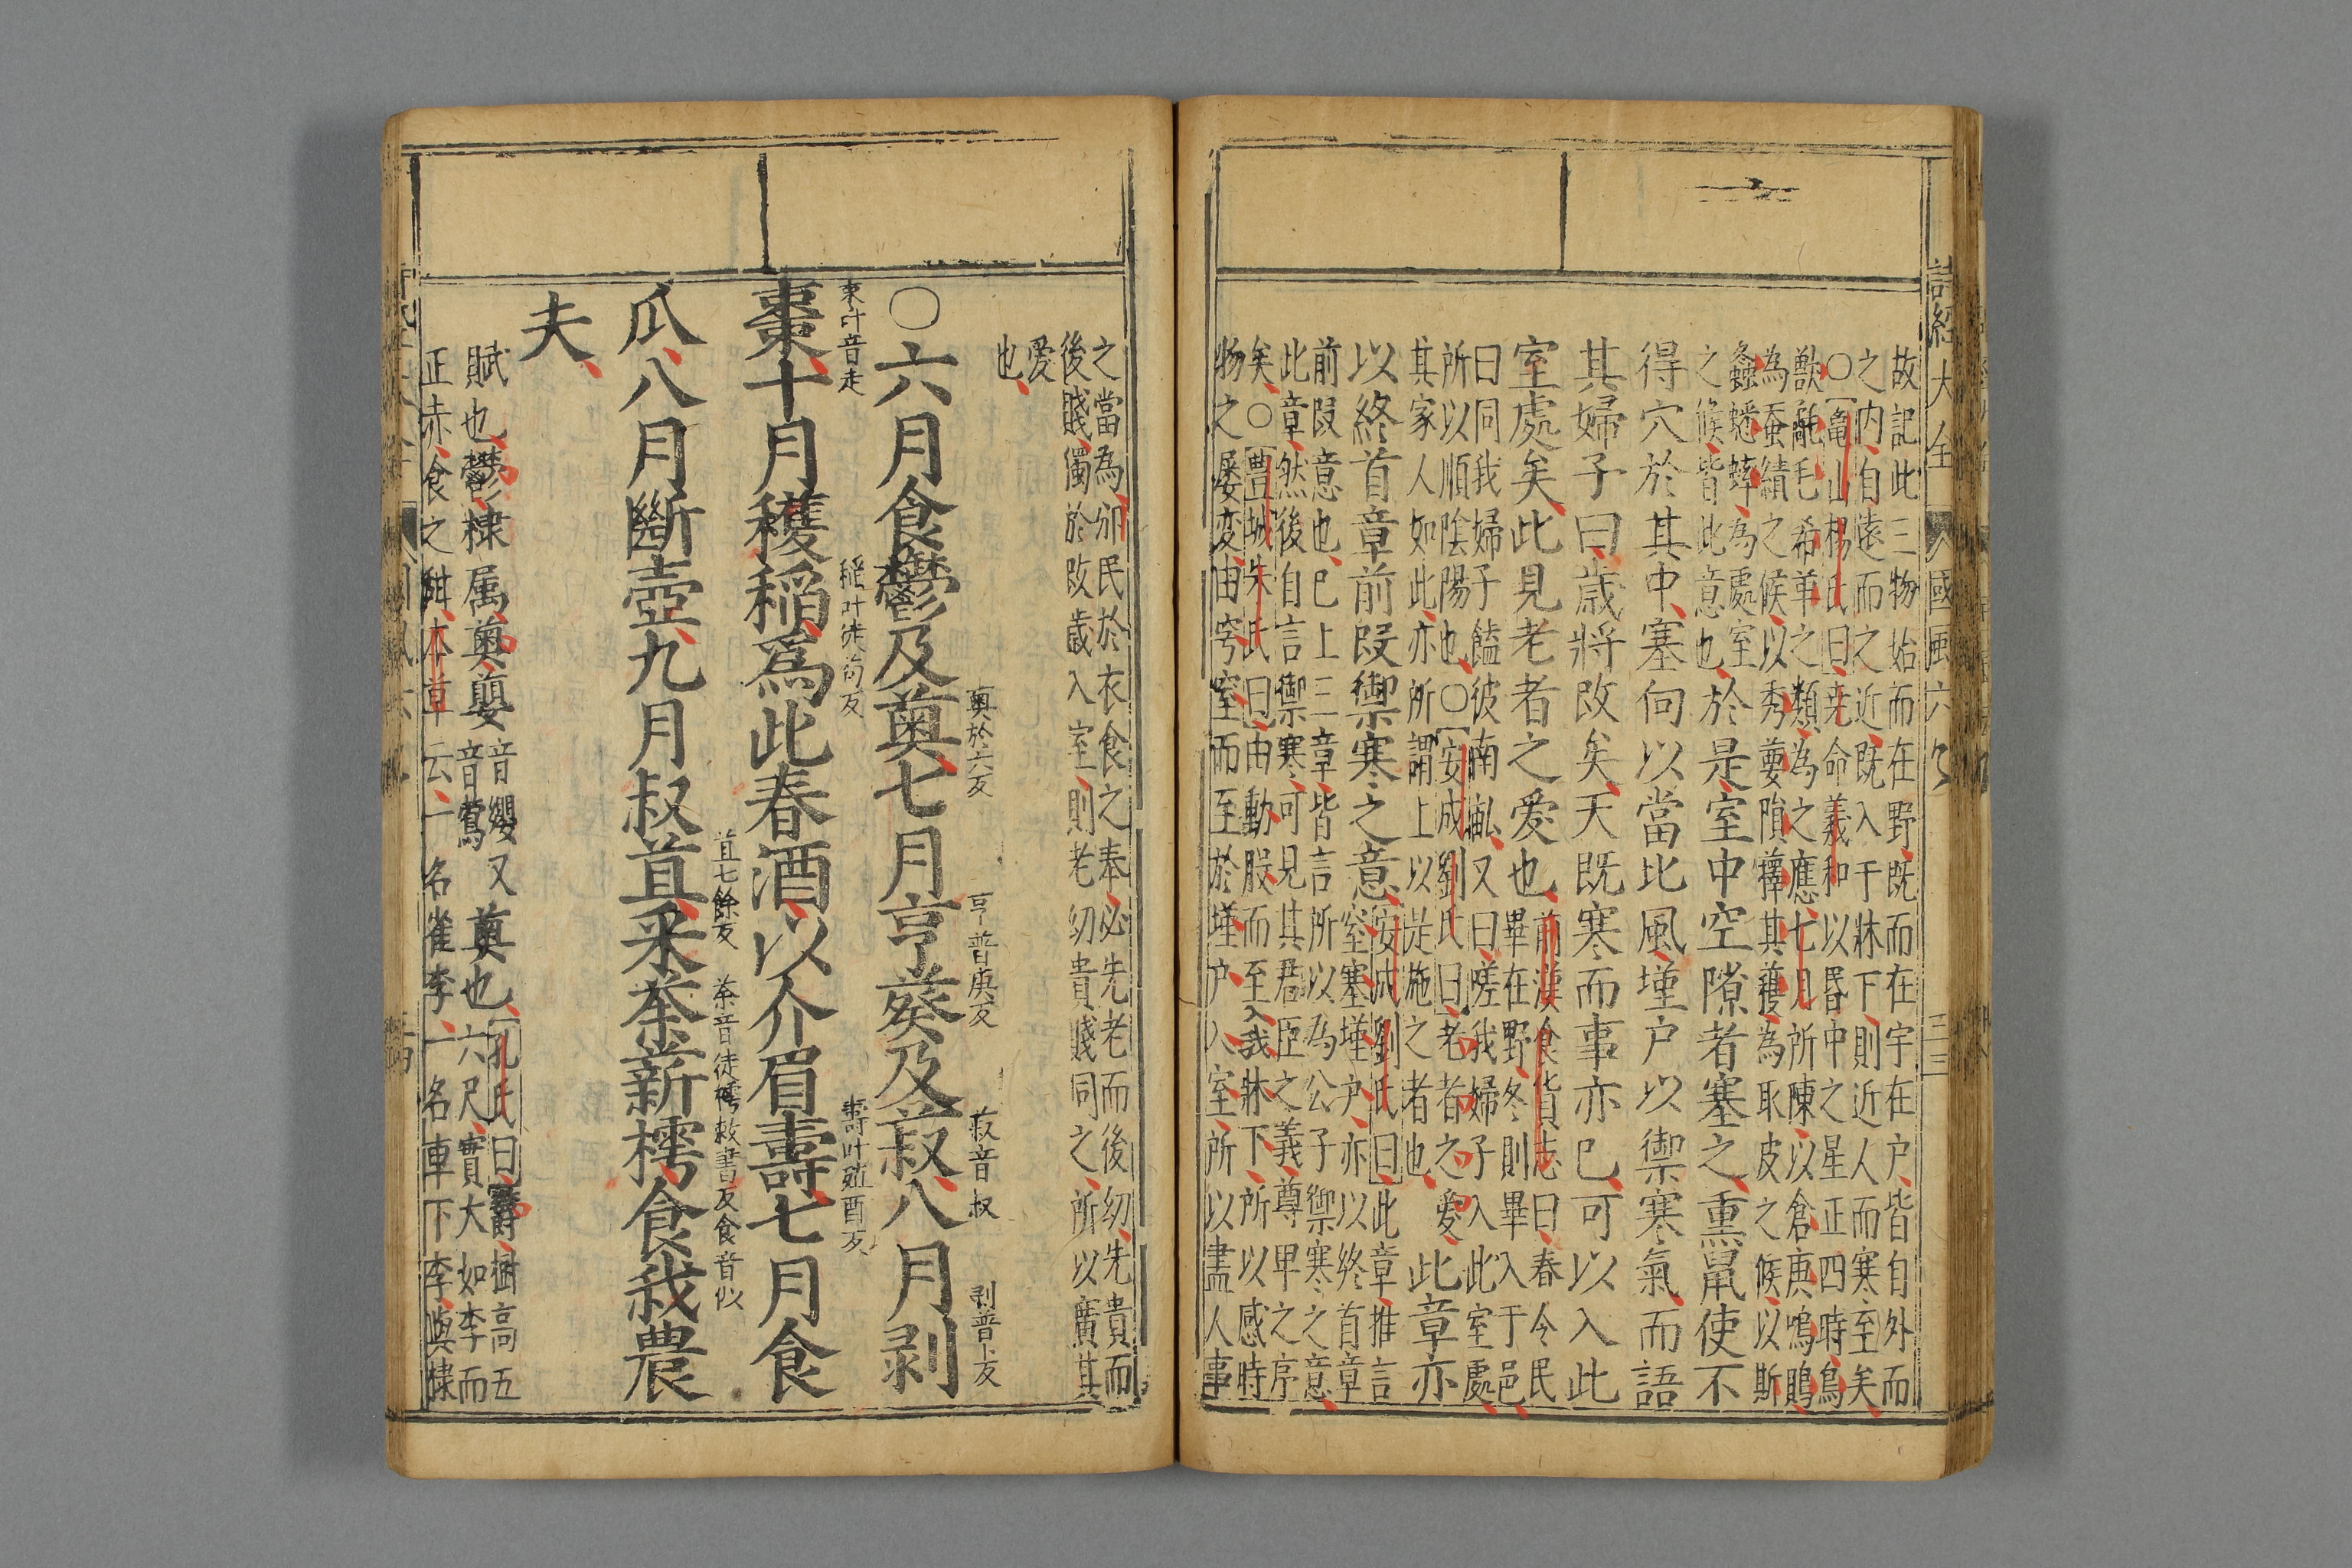 詩經大全 國風六 三三
故記此三物始而在野既而在宇在户皆自外而
之内自遠而之近既入于牀下則近人而寒至矣
○龜山楊氏曰尭命羲和以昬中之星正四時鳥
獸氄毛希革之類為之應七月所陳以倉庚鳴鵙
為蚕績之候以秀葽隕蘀其穫為取皮之候以斯
螽蟋蟀為處室
之候皆此意也於是室中空隙者塞之熏鼠使不
得穴於其中塞向以當北風墐户以禦寒氣而語
其婦子曰歲將改矣天既寒而事亦已可以入此
室處矣此見老者之愛也
前漢食貨志曰春令民
畢在野冬則畢入于邑
曰同我婦子饁彼南畝又曰嗟我婦子入此室處
所以順陰陽也○安成劉氏曰老者之愛
其家人如此亦所謂上以是施之者也
此章亦
以終首章前段禦寒之意
安成劉氏曰此章推言
室塞墐户亦以終首章
前段意也已上三章皆言所以為公子禦寒之意
此章然後自言禦寒可見其君臣之義尊卑之序
矣○豊城朱氏曰由動股而至入我牀下所以感時
物之屡変由穹窒而至於墐户入室所以盡人事
之當為邠民於衣食之奉必先老而後幼先貴而
後賤獨於改歲入室則老幼貴賤同之所以廣其
愛
也
薁於六反
亨普庚反
菽音叔
剥普卜反
○六月食鬱及薁七月亨葵及菽八月剥
棗叶音走
稻叶徒苟反
壽叶殖酉反
棗十月穫稻爲此春酒以介眉壽七月食
苴七餘反
荼音徒樗敕書反食音似
瓜八月斷壺九月叔苴采荼薪樗食我農
夫
賦也鬱棣属薁蘡
音纓又
音鶯
薁也
孔氏曰鬱樹高五
六尺實大如李而
正赤食之甜本草云一名雀李一名車下李薁棣